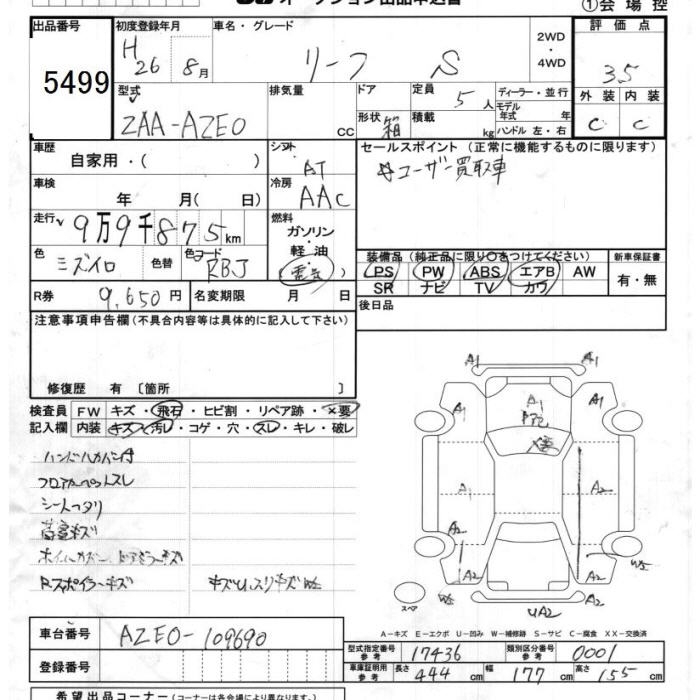 ①会場控
出品番号
5499
初度登録年月
H 26 8月
車名・グレード
リーフ S
2WD
・
4WD
評価点
3.5
外装 内装
C C
型式
ZAA-AZE0
排気量
CC
ドア
形状 箱
定員 5人
積載 kg
ディーラー・並行
モデル
年式 年
ハンドル 左・右
車歴
自家用・( )
シフト
AT
冷房
AAC
車検
年 月( 日)
走行
9万9千875km
燃料
ガソリン
・
軽油
電気
色
ミズイロ
色替
色コード
RBJ
セールスポイント (正常に機能するものに限ります)
ユーザー買取車
装備品 (純正品に限り○をつけてください)
PS PW ABS エアB AW
SR ナビ TV カワ
新車保証書
有・無
R券 9,650円
名変期限 月 日
後日品
注意事項申告欄(不具合内容等は具体的に記入して下さい)
修復歴 有 〔箇所 〕
検査員
記入欄
FW キズ・飛石・ヒビ割・リペア跡・×要
内装 キズ・汚レ・コゲ・穴・スレ・キレ・破レ
ハンドルカバー付
フロアカーペットスレ
シートヘタリ
荷室キズ
Rスポイラーキズ
A1 A1
A1 A1 A1
A1 A2
A2 A2
A2 A2
W2
UA2
スペア
A-キズ E-エクボ U-凹み W-補修跡 S-サビ C-腐食 XX-交換済
車台番号 AZE0-109690
登録番号
型式指定番号
参考
17436
類別区分番号
参考
0001
車庫証明用
参考
長さ 444cm 幅 177cm 高さ 155cm
希望出品コーナー